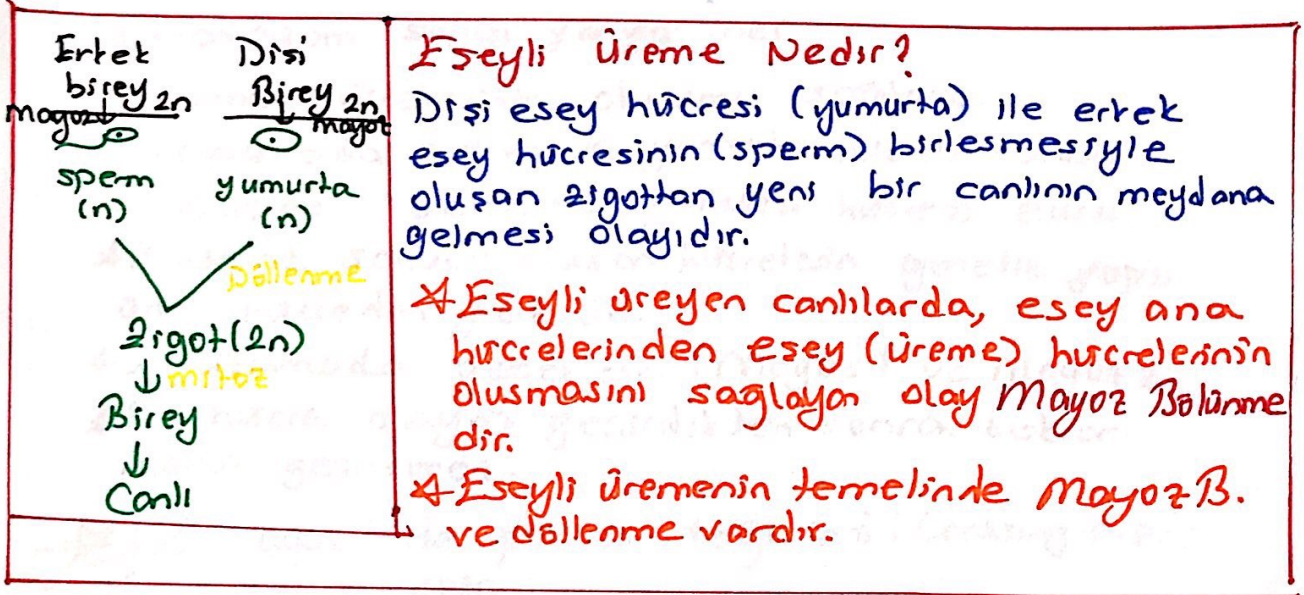 Erkek Dişi
birey 2n Birey 2n
mayoz mayoz
sperm yumurta
(n) (n)
Döllenme
Zigot (2n)
↓ mitoz
Birey
↓
Canlı
Eşeyli üreme Nedir?
Dişi eşey hücresi (yumurta) ile erkek
eşey hücresinin (sperm) birleşmesiyle
oluşan zigottan yeni bir canlının meydana
gelmesi olayıdır.
Eşeyli üreyen canlılarda, eşey ana
hücrelerinden eşey (üreme) hücrelerinin
oluşmasını sağlayan olay Mayoz Bölünme
dir.
Eşeyli üremenin temelinde Mayoz B.
ve döllenme vardır.